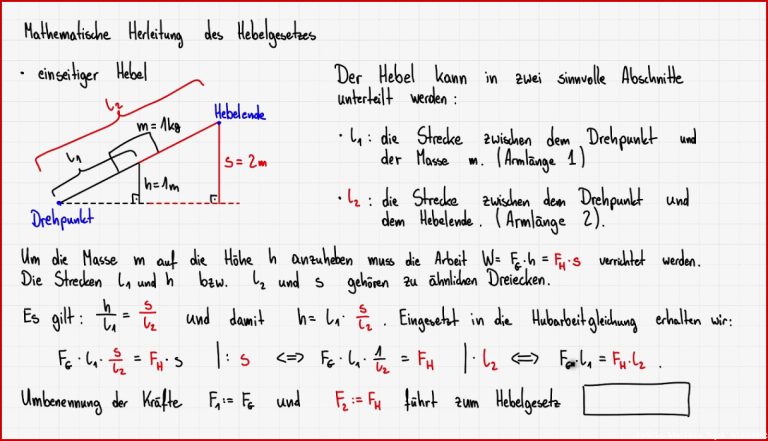 Mathematische Herleitung des Hebelgesetzes
• einseitiger Hebel
l₂
Hebelende
m=1kg
l₁
s=2m
h=1m
Drehpunkt
Der Hebel kann in zwei sinnvolle Abschnitte
unterteilt werden:
• l₁: die Strecke zwischen dem Drehpunkt und
der Masse m. (Armlänge 1)
• l₂: die Strecke zwischen dem Drehpunkt und
dem Hebelende. (Armlänge 2).
Um die Masse m auf die Höhe h anzuheben muss die Arbeit W= F_G·h = F_H·s verrichtet werden.
Die Strecken l₁ und h bzw. l₂ und s gehören zu ähnlichen Dreiecken.
Es gilt: h/l₁ = s/l₂ und damit h= l₁· s/l₂. Eingesetzt in die Hubarbeitgleichung erhalten wir:
F_G · l₁· s/l₂ = F_H· s |: s <=> F_G· l₁· 1/l₂ = F_H |· l₂ <=> F_G·l₁ = F_H·l₂ .
Umbenennung der Kräfte F₁:= F_G und F₂:= F_H führt zum Hebelgesetz